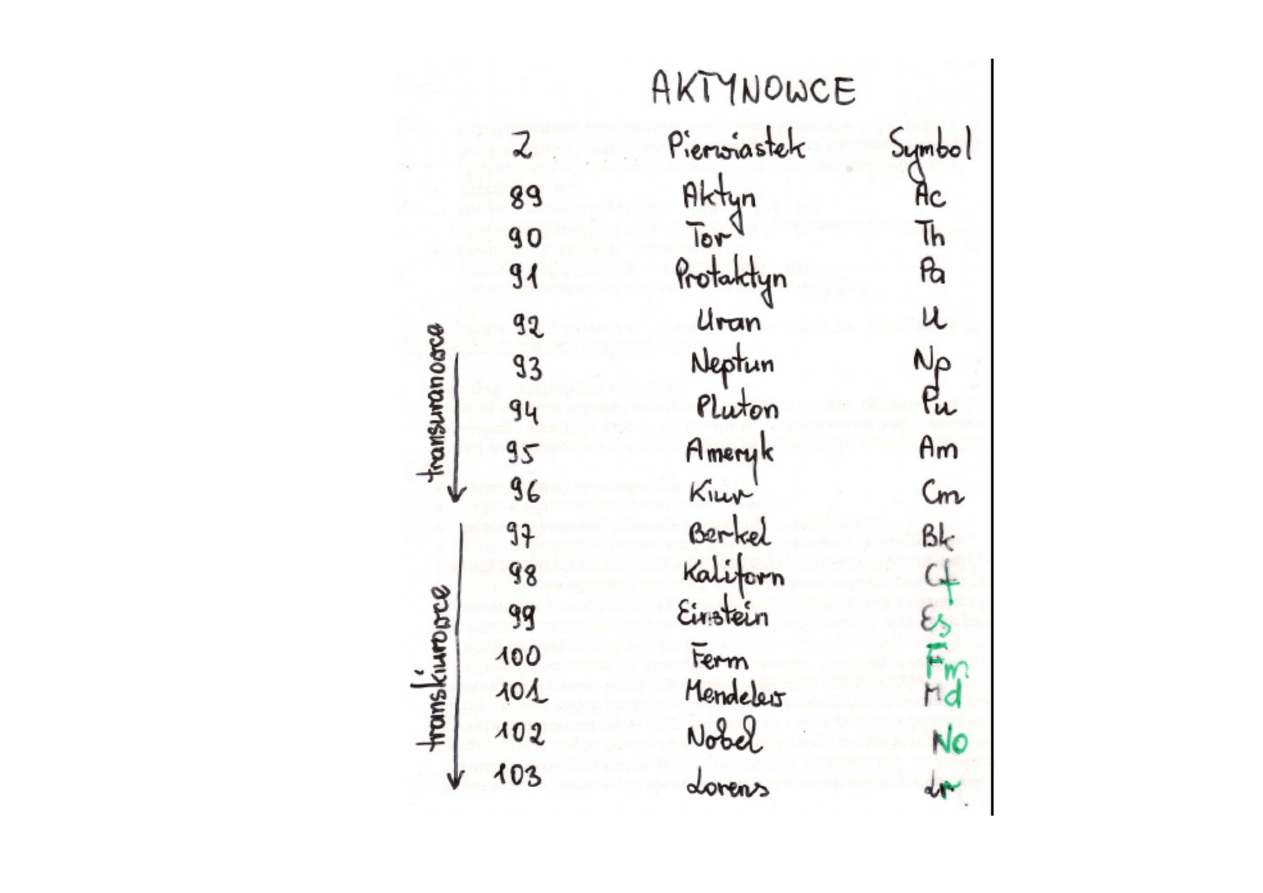 AKTYNOWCE
Z Pierwiastek Symbol
89 Aktyn Ac
90 Tor Th
91 Protaktyn Pa
92 Uran U
93 Neptun Np
94 Pluton Pu
95 Ameryk Am
96 Kiur Cm
97 Berkel Bk
98 Kaliforn Cf
99 Einstein Es
100 Ferm Fm
101 Mendelew Md
102 Nobel No
103 Lorens Lr
transuranowce
transkiurowce